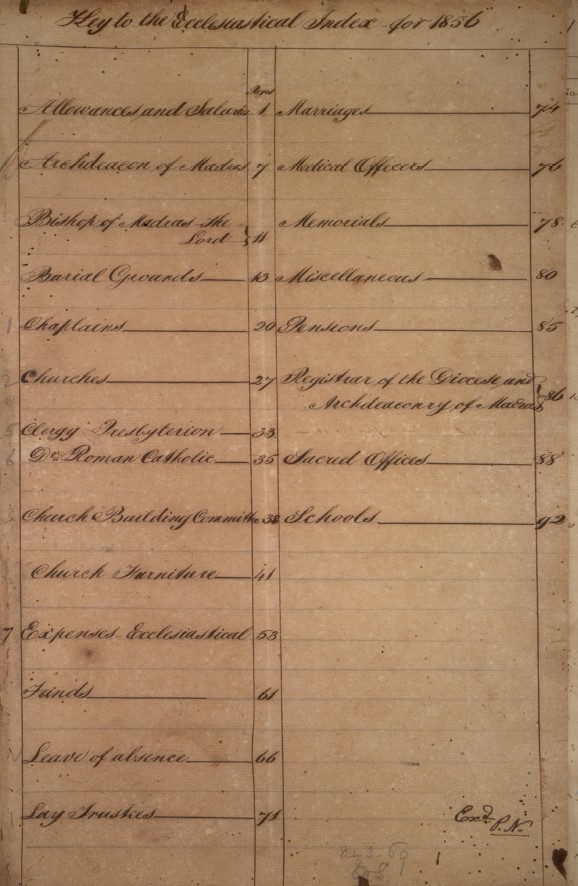 Key to the Ecclesiastical Index for 1856
Pages
Allowances and Salaries 1
Archdeacon of Madras 7
Bishop of Madras The
Lord 11
Burial Grounds 13
1 Chaplains 20
2 Churches 27
5 Clergy Presbyterion 33
6 Do Roman Catholic 35
Church Building Committee 38
Church Furniture 41
7 Expenses Ecclesiastical 53
Funds 61
Leave of absence 66
Lay Trustees 71
Marriages 74
Medical Officers 76
Memorials 78
Miscellaneous 80
Pensions 85
Registrar of the Diocese and
Archdeaconry of Madras 86
Sacred Offices 88
Schools 92
Exd P.N.